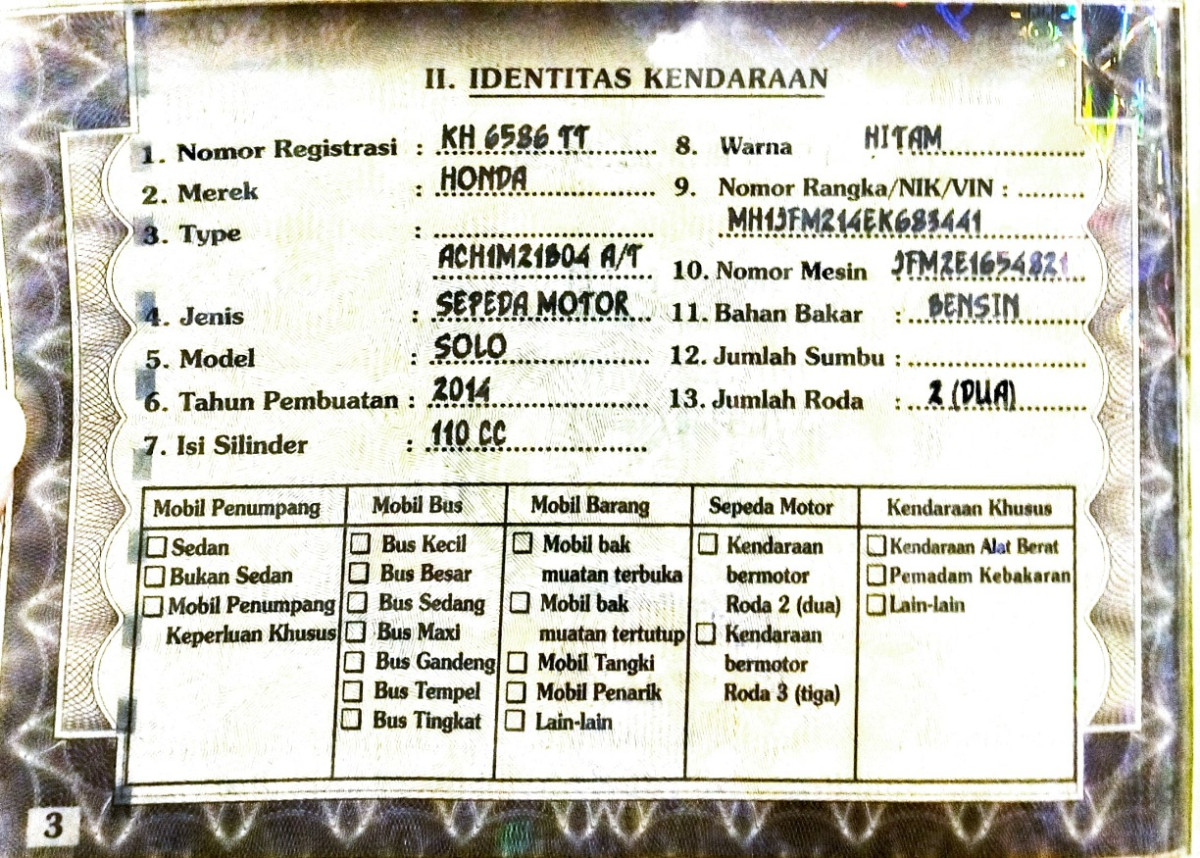 II. IDENTITAS KENDARAAN
1. Nomor Registrasi : KH 6586 TT
2. Merek : HONDA
3. Type :
ACH1M21B04 A/T
4. Jenis : SEPEDA MOTOR
5. Model : SOLO
6. Tahun Pembuatan : 2014
7. Isi Silinder : 110 CC
8. Warna HITAM
9. Nomor Rangka/NIK/VIN :
MH1JFM214EK683441
10. Nomor Mesin JFM2E1654821
11. Bahan Bakar : BENSIN
12. Jumlah Sumbu :
13. Jumlah Roda : 2 (DUA)
Mobil Penumpang
Sedan
Bukan Sedan
Mobil Penumpang
Keperluan Khusus
Mobil Bus
Bus Kecil
Bus Besar
Bus Sedang
Bus Maxi
Bus Gandeng
Bus Tempel
Bus Tingkat
Mobil Barang
Mobil bak
muatan terbuka
Mobil bak
muatan tertutup
Mobil Tangki
Mobil Penarik
Lain-lain
Sepeda Motor
Kendaraan
bermotor
Roda 2 (dua)
Kendaraan
bermotor
Roda 3 (tiga)
Kendaraan Khusus
Kendaraan Alat Berat
Pemadam Kebakaran
Lain-lain
3